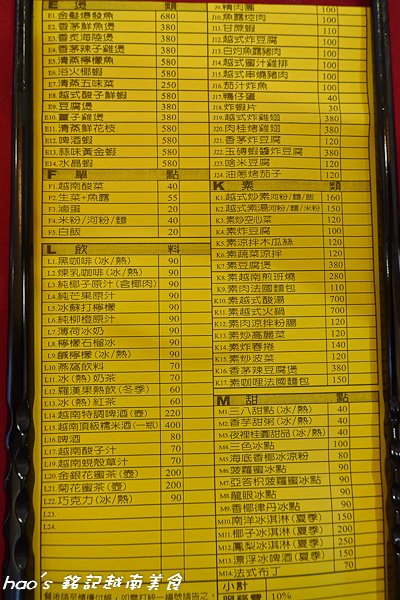 E 煲 類
E1.金鬆爆發魚 680
E2.香茅鮮魚煲 580
E3.香炙海陸煲 580
E4.香茅辣子雞煲 380
E5.清蒸檸檬魚 580
E6.浴火椰蝦 580
E7.清蒸五味菜 250
E8.越式酸子鮮蝦 580
E9.豆腐煲 380
E10.薑子雞煲 380
E11.清蒸鮮花枝 580
E12.啤酒蝦 580
E13.蒜味黃金蝦 580
E14.水晶蝦 580
F 單 點
F1.越南酸菜 40
F2.生菜+魚露 55
F3.滷蛋 20
F4.米粉/河粉/麵 40
F5.白飯 20
L 飲 料
L1.黑咖啡(冰/熱) 90
L2.煉乳咖啡(冰/熱) 90
L3.純椰子原汁(含椰肉) 90
L4.純芒果原汁 90
L5.冰蘇打檸檬 90
L6.純柳橙原汁 90
L7.薄荷冰奶 90
L8.檸檬石榴冰 90
L9.鹹檸檬(冰/熱) 90
L10.燕窩飲料 70
L11.冰(熱)奶茶 70
L12.羅漢果熱飲(冬季) 60
L13.冰(熱)紅茶 60
L14.越南特調啤酒(壺) 220
L15.越南頂級糯米酒(一瓶) 400
L16.啤酒 80
L17.越南酸子汁 70
L18.越南蜆殼草汁 70
L20.金銀花蜜茶(壺) 200
L21.菊花蜜茶(壺) 200
L22.巧克力(冰/熱) 90
L23.
L24.
J9.精肉團 100
J10.魚露焢肉 100
J11.甘蔗蝦 110
J12.越式炸豆腐 100
J13.白灼魚露豬肉 100
J14.越式蜜汁雞排 100
J15.越式串燒豬肉 100
J16.茄汁炸魚 100
J17.鴨子蛋 40
J18.炸蝦片 30
J19.越式炸雞 380
J20.肉桂烤雞翅 380
J21.香茅炸豆腐 120
J22.玉磚蝦醬炸豆腐 380
J23.啥米豆腐 120
J24.油蔥烤茄子 120
K 素 類
K1.越式炒素河粉/麵/飯 160
K2.越式素湯河粉/麵/米粉 150
K3.素炒空心菜 120
K4.素炸豆腐 100
K5.素涼拌木瓜絲 120
K6.素蔬菜涼拌 120
K7.素豆腐煲 380
K8.素越南煎班燒 280
K9.素肉法國麵包 110
K10.素越式酸湯 700
K11.素越式火鍋 700
K12.素肉涼拌粉腸 120
K13.素炒高麗菜 120
K14.素炸春捲 140
K15.素炒波菜 120
K16.香茅辣豆腐煲 380
K17.素咖哩法國麵包 150
M 甜 點
M1.三八甜點(冰/熱) 40
M2.香芋甜粥(冰/熱) 40
M3.夜裡桂圓甜品(冰/熱) 40
M4.三色冰點 100
M5.海底香椰冰涼粉 80
M6.菠蘿蜜冰點 90
M7.亞答枳菠蘿蜜冰點 90
M8.龍眼冰點 90
M9.香椰律丹冰點 90
M10.南洋冰淇淋(夏季) 150
M11.椰子冰淇淋(夏季) 200
M12.鳳梨冰淇淋(夏季) 200
M13.漂浮冰啤酒(夏季) 150
M14.法式布丁 70
小計
服務費 10%
hao's 銘記越南美食